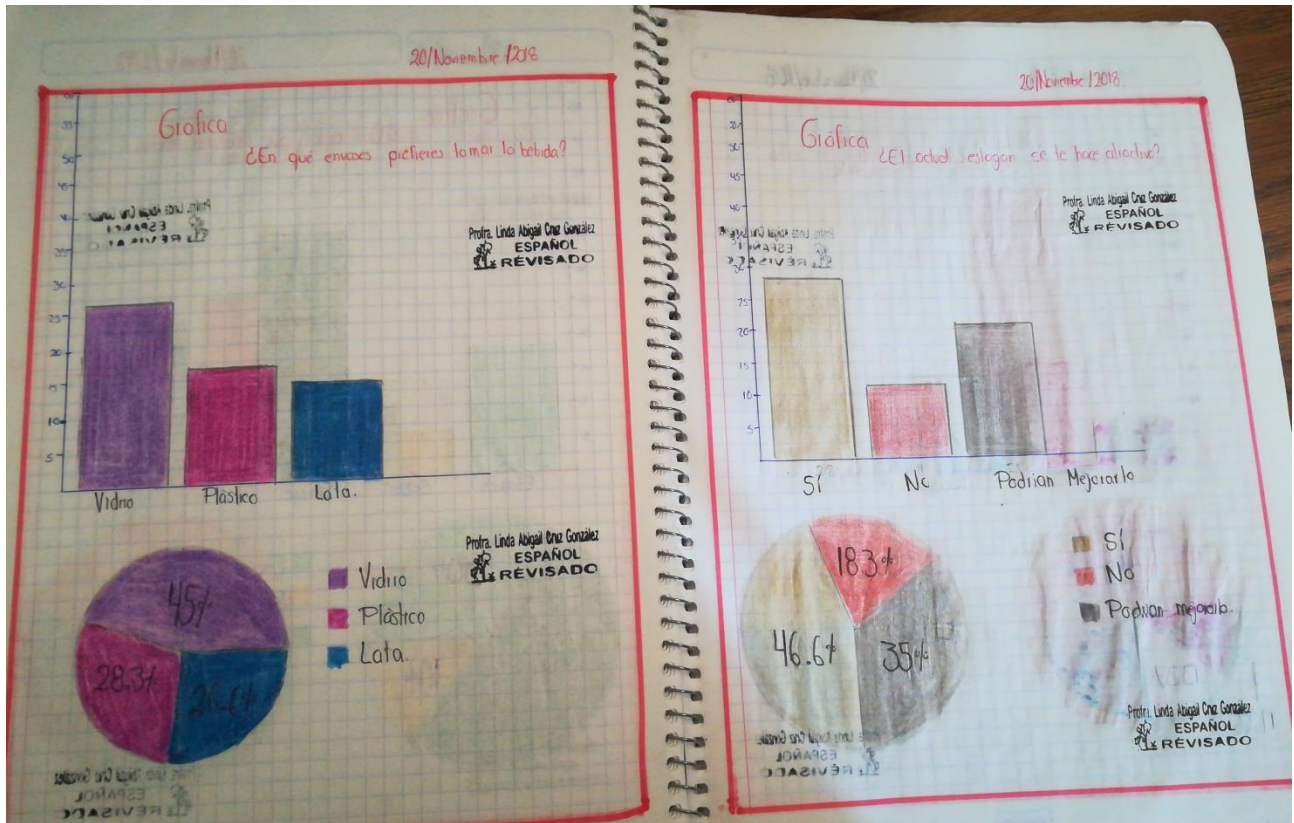 20/Noviembre/2018
Grafica
¿En qué envases prefieres tomar la bebida?
60
55
50
45
40
35
30
25
20
15
10
5
Profra. Linda Abigail Cruz González
ESPAÑOL
REVISADO
Vidrio
Plástico
Lata.
45%
28.3%
26.6%
Vidrio
Plástico
Lata.
Profra. Linda Abigail Cruz González
ESPAÑOL
REVISADO
20/Noviembre/2018.
Gráfica
¿El actual eslogan se te hace atractivo?
60
50
45
40
30
25
20
15
10
5
Profra. Linda Abigail Cruz González
ESPAÑOL
REVISADO
Sí
No
Podrían Mejorarlo
18.3%
46.6%
35%
Sí
No
Podrían mejorarlo.
Profra. Linda Abigail Cruz González
ESPAÑOL
REVISADO